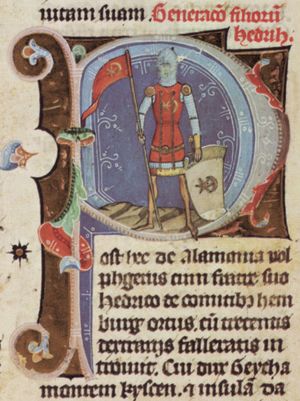 iutam suam. Generacō filiorū
hedrih.
Post hec de Alamania vol
phgerus cum fratre suo
hedrico de comitibꝫ hem
burge ortus, cū trecentis
dextrarijs falleratis in
troiuit. Cui dux Geycha
montem kyscen. ⁊ insulā da